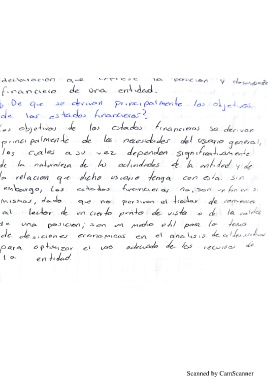 declaración que la posición y desempeño
financiero de una entidad.
De que se derivan principalmente los objetivos
de los estados financieros?
Los objetivos de los estados financieros se derivan
principalmente de las necesidades del usuario general,
los cuales a su vez dependen significativamente
de la naturaleza de las actividades de la entidad y de
la relación que dicho usuario tenga con esta. sin
embargo, los estados financieros no son
mismos, dado que no persiguen el tratar de convencer
al lector de un cierto punto de vista o de la validez
de una posición; son un medio útil para la toma
de desiciones economicas en el analisis de alternativas
para optimizar el uso adecuado de los recursos de
la entidad.
Scanned by CamScanner